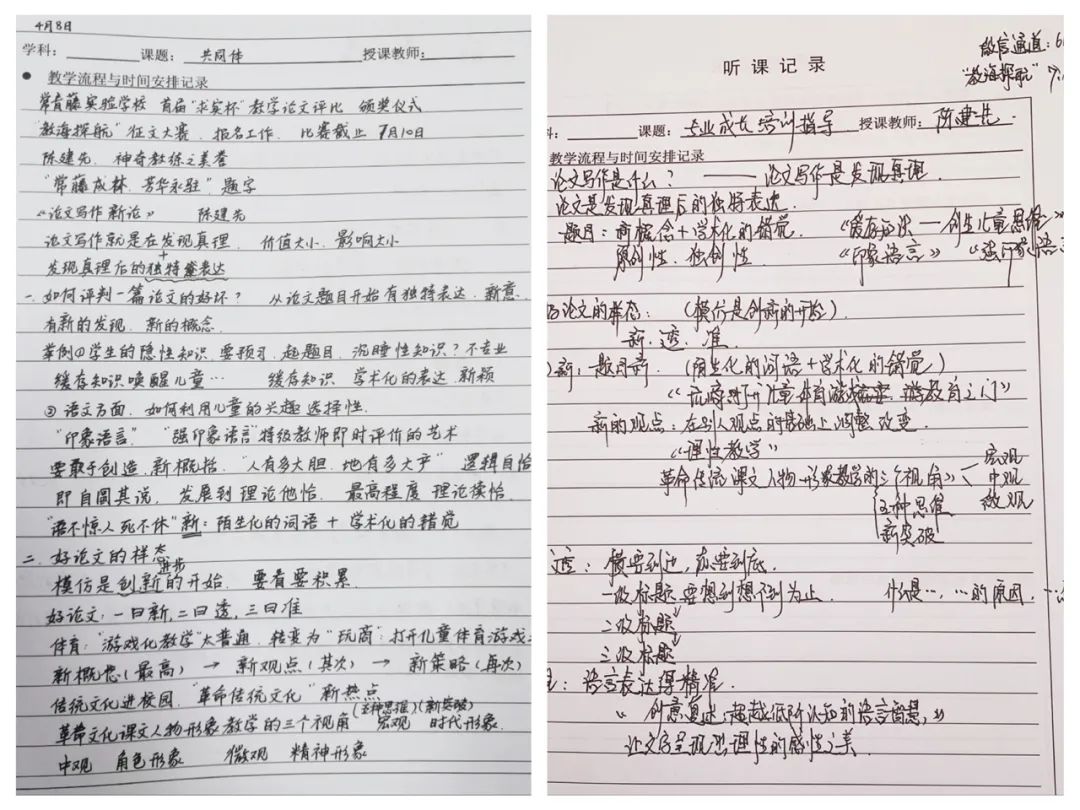 4月8日
学科： 课题： 共同体 授课教师：
● 教学流程与时间安排记录
常青藤实验学校 首届"求实杯"教学论文评比 颁奖仪式
"教海探航"征文大赛．报名工作． 比赛截止 7月10日
陈建先．神奇教练之美誉
"常藤成林．芳华永驻"题字
《论文写作新论》 陈建先
论文写作就是在发现真理． 价值大小．影响大小
+
发现真理后的独特表达
一．如何评判一篇论文的好坏？ 从论文题目开始有独特表达．新意．
有新的发现．新的概念．
举例①学生的隐性知识．要预习．起题目．沉睡性知识？不专业
缓存知识唤醒儿童… 缓存知识．学术化的表达．新颖
② 语文方面．如何利用儿童的兴趣选择性．
"印象语言"． "强印象语言"特级教师即时评价的艺术
要敢于创造．新概括．"人有多大胆．地有多大产" 逻辑自恰
即自圆其说， 发展到理论他恰． 最高程度 理论续恰．
"语不惊人死不休"新：陌生化的词语 + 学术化的错觉
二．好论文的样态
进步
模仿是创新的开始． 要看要积累．
好论文：一曰新，二曰透，三曰准
体育："游戏化教学"太普通．转变为"玩商"：打开儿童体育游戏
新概念（最高） → 新观点（其次） → 新策略（再次）
传统文化进校园．"革命传统文化"新热点
（五种思维）（新突破）
革命文化课文人物形象教学的三个视角 宏观 时代形象．
中观 角色形象 微观 精神形象
微信通道：6
"教海探航" 7.
听课记录
课题： 专业成长培训指导 授课教师： 陈建先．
教学流程与时间安排记录
论文写作是什么？ —— 论文写作是发现真理．
论文是发现真理后的独特表达．
题目：新概念 + 学术化的错觉． 《缓存知识——创生儿童思维》
原创性．独创性 《印象语言》 《强印象语言
论文的样态： （模仿是创新的开始）．
新．透．准．
新：题目新．（陌生化的词语 + 学术化的错觉）
《玩商：打开儿童体育游戏教育之门》
新的观点：在别人观点的基础上调整改变．
《理性教学》
革命传统课文人物形象教学的三个视角》 宏观
中观
微观
五种思维
新突破
透：横要到边，纵要到底．
一级标题要想到想不到为止． 什么是…，…的原因，
二级标题
三级标题
：语言表达得精准．
《创意复述：超越低阶认知的语言智慧》
让文字呈现思理性的感性之美．